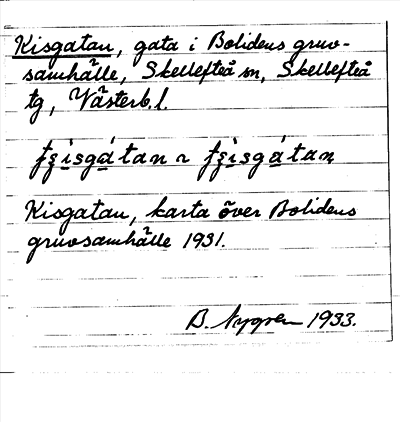 Kisgatan, gata i Bolidens gruv-
samhälle, Skellefteå sn, Skellefteå
tg, Västerb. l.
Kisgatan, karta över Bolidens
gruvsamhälle 1931.
B. Nygren 1933.